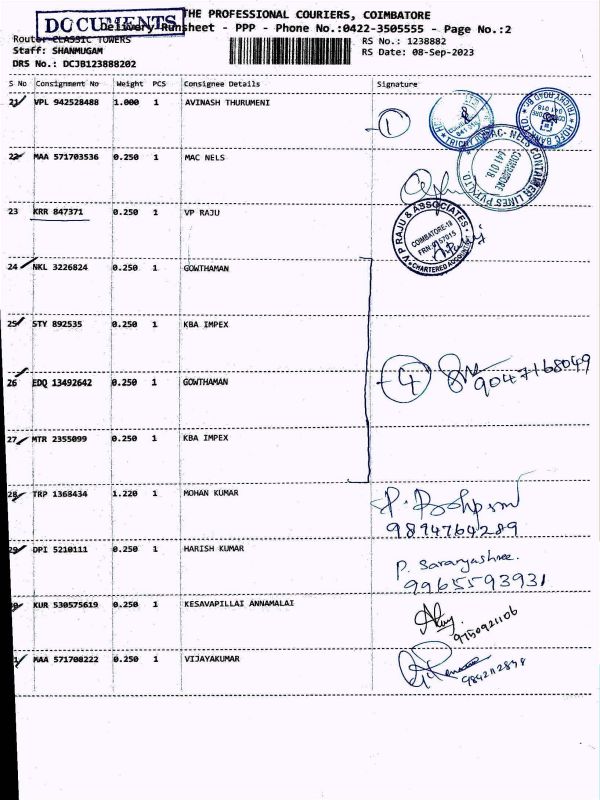 DOCUMENTS
THE PROFESSIONAL COURIERS, COIMBATORE
Delivery Runsheet - PPP - Phone No.:0422-3505555 - Page No.:2
Route: CLASSIC TOWERS
RS No.: 1238882
Staff: SHANMUGAM
RS Date: 08-Sep-2023
DRS No.: DCJB123888202
S No Consignment No Weight PCS Consignee Details Signature
21 VPL 942528488 1.000 1 AVINASH THURUMENI
1
22 MAA 571703536 0.250 1 MAC NELS
MAC- NELS CONTAINER LINES PVT.LTD.
COIMBATORE
641 018.
23 KRR 847371 0.250 1 VP RAJU
V P RAJU & ASSOCIATES
COIMBATORE-18
CHARTERED ACCOUNTANTS
24 NKL 3226824 0.250 1 GOWTHAMAN
25 STY 892535 0.250 1 KBA IMPEX
26 EDQ 13492642 0.250 1 GOWTHAMAN
4 9047168049
27 MTR 2355099 0.250 1 KBA IMPEX
28 TRP 1368434 1.220 1 MOHAN KUMAR
9894764289
29 DPI 5210111 0.250 1 HARISH KUMAR
P. Saranyashree.
9965593931
KUR 530575619 0.250 1 KESAVAPILLAI ANNAMALAI
9150921106
MAA 571708222 0.250 1 VIJAYAKUMAR